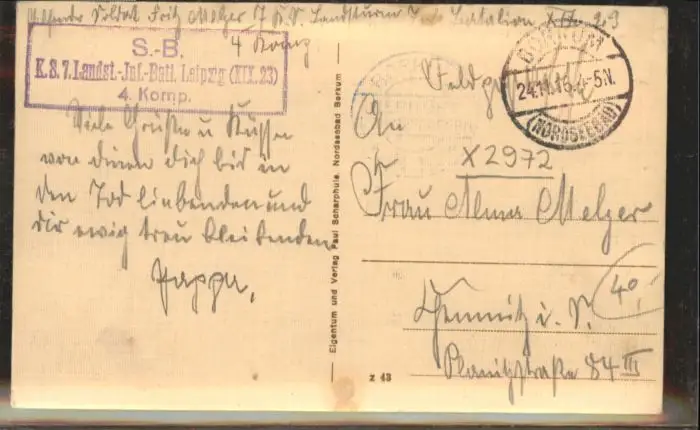 Absender Soldat Fritz Melzer 7 K. S. Landsturm Inf. Batalion XIX. 23
4 Komp
S.-B.
K. S. 7. Landst.-Inf.-Batl. Leipzig (XIX. 23)
4. Komp.
Viele Grüße u Küsse
von deinen dich bis in
den Tod liebenden und
dir ewig treu bleibenden
Pappa,
Eigentum und Verlag Paul Scharphuis, Nordseebad Borkum
Feldpost
BORKUM
24.11.15. 4-5N.
(NORDSEEBAD)
An
X 2972
Frau Alma Melzer
Chemnitz i. S.
40
Planitzstraße 84 III
z 43